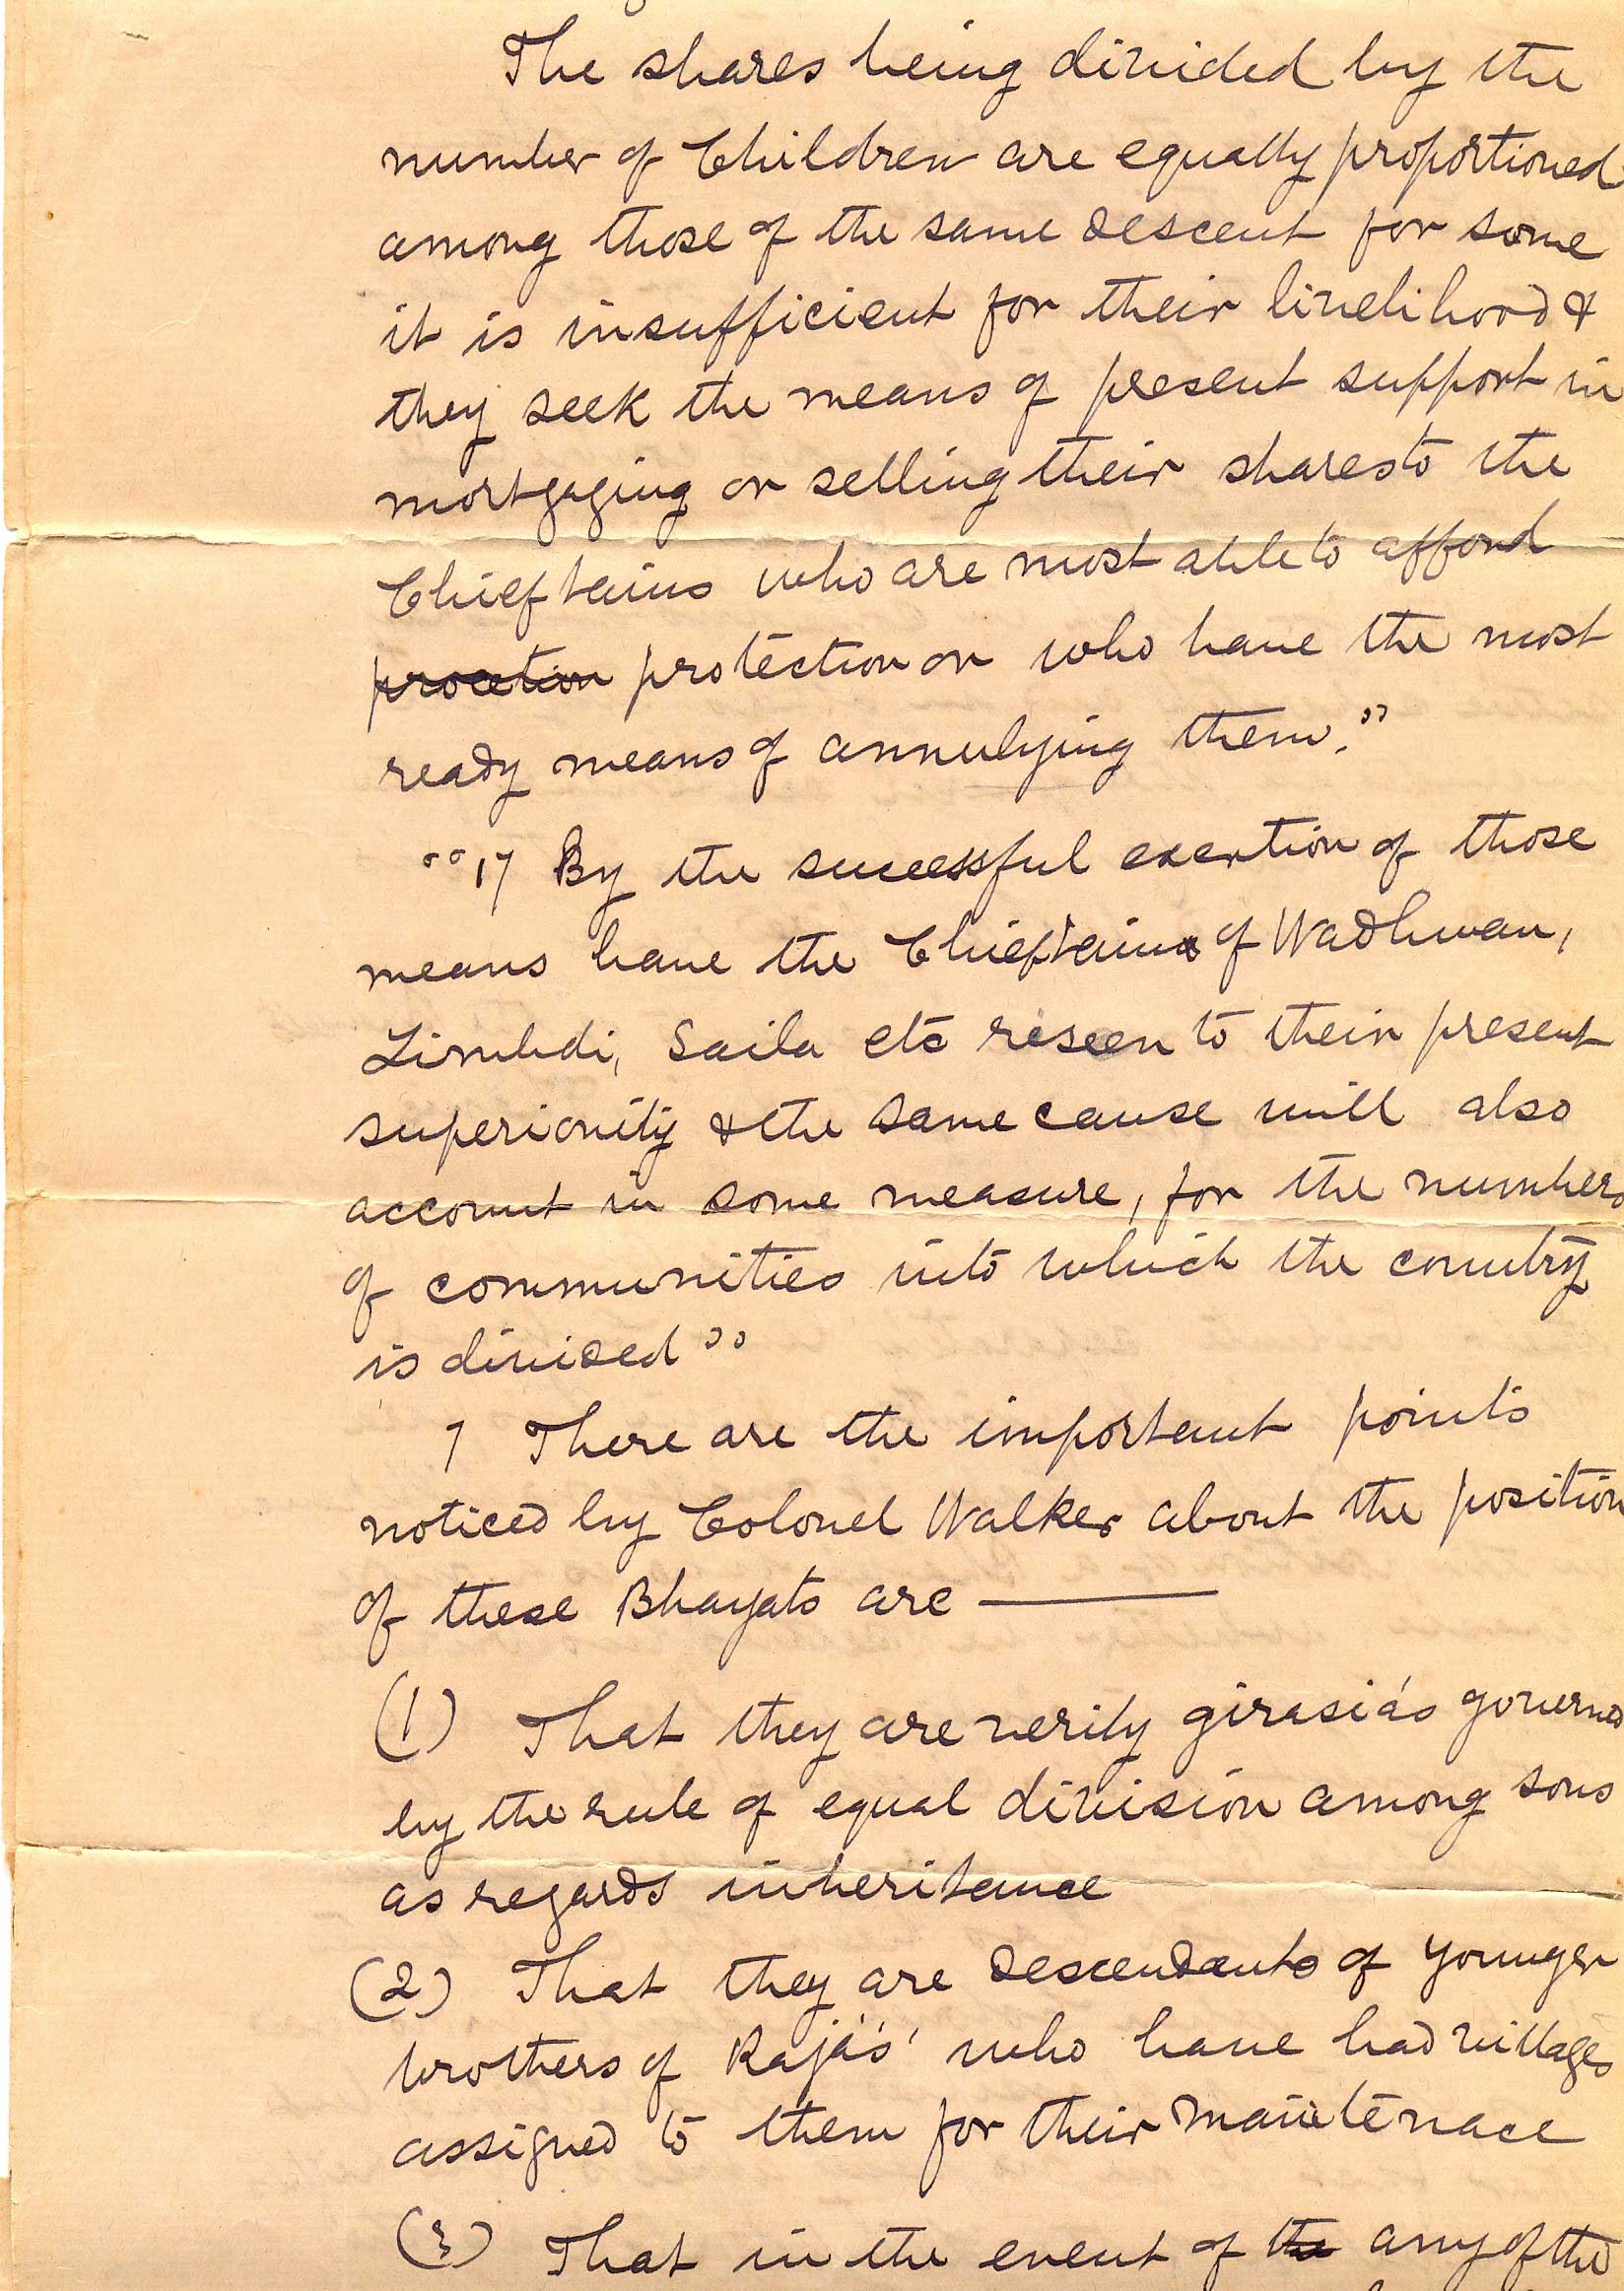 The shares being divided by the
number of Children are equally proportioned
among those of the same descent for some
it is insufficient for their livelihood &
they seek the means of present support in
mortgaging or selling their shares to the
Chieftains who are most able to afford
procetion protection or who have the most
ready means of annulying them."
""17 By the successful exertion of those
means have the Chieftains of Wadhwan,
Limbdi, Saila etc riseen to their present
superiority & the same cause will also
account in some measure, for the numbers
of communities into which the country
is divided"
7 There are the important points
noticed by Colonel Walker about the position
of these Bhayats are ———
(1) That they are verily girasiá's governed
by the rule of equal division among sons
as regards inheritance
(2) That they are descendants of younger
brothers of Rajá's' who have had villages
assigned to them for their maintenace
(3) That in the event of the any of the